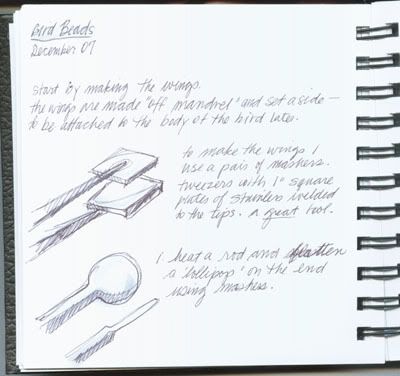 Bird Beads
December 07
start by making the wings.
the wings are made "off mandrel" and set aside —
to be attached to the body of the bird later.
to make the wings I
use a pair of mashers.
tweezers with 1" square
plates of stainless welded
to the tips. A great tool.
1. heat a rod and flatten
a 'lollipop' on the end
using mashers.